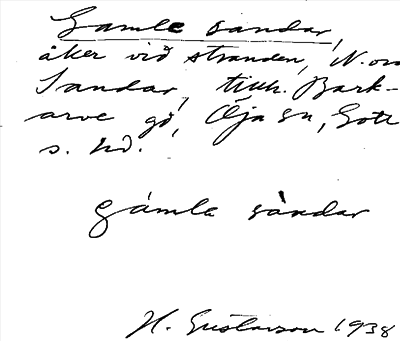 Gamle sandar,
åker vid stranden, N. om
Sandar, tillh. Bark-
arve gd, Öja sn, Gotl
s. hd.
gámla sàndar
H. Gustavson 1938